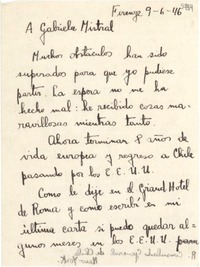 Firenze 9-6-46
A Gabriela Mistral
Muchos obstáculos han sido
superados para que yo pudiese
partir. La espera no me ha
hecho mal: he recibido cosas ma-
ravillosas mientras tanto.
Ahora terminan 8 años de
vida europea y regreso a Chile
pasando por los E.E.U.U.
Como le dije en el Grand Hotel
de Roma y como escribí en mi
última carta si puedo quedar al-
gunos meses en los E.E.U.U.